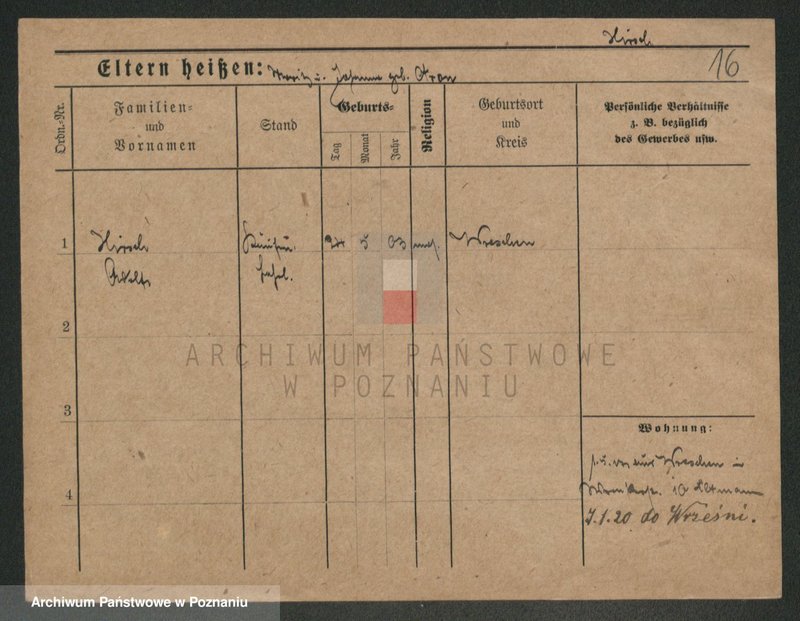 Hirsch
16
Eltern heißen: Moritz u. Johanna geb. Kron
Ordn.-Nr.
Familien-
und
Vornamen
Stand
Geburts-
Tag
Monat
Jahr
Religion
Geburtsort
und
Kreis
Persönliche Verhältnisse
z. B. bezüglich
des Gewerbes usw.
1
Hirsch
24
5
03
mos.
Wreschen
2
ARCHIWUM PAŃSTWOWE
W POZNANIU
3
Wohnung:
Wreschen
4
10
7.1.20 do Wrześni.
Archiwum Państwowe w Poznaniu